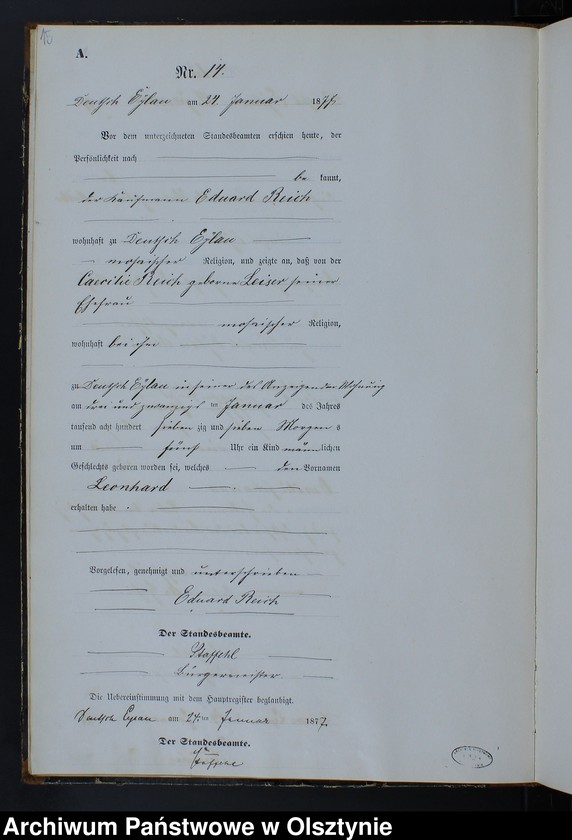 A.
Nr. 14.
Deutsch Eylau am 24 Januar 1877.
Vor dem unterzeichneten Standesbeamten erschien heute, der
Persönlichkeit nach
be kannt,
der Kaufmann Eduard Reich
wohnhaft zu Deutsch Eylau
mosaischer Religion, und zeigte an, daß von der
Caecilie Reich geborne Leiser seiner
Ehefrau
mosaischer Religion,
wohnhaft bei ihm
zu Deutsch Eylau in seiner des Anzeigenden Wohnung
am drei und zwanzigs ten Januar des Jahres
tausend acht hundert sieben zig und sieben Morgen s
um fünf Uhr ein Kind männlichen
Geschlechts geboren worden sei, welches den Vornamen
Leonhard
erhalten habe.
Vorgelesen, genehmigt und unterschrieben
Eduard Reich
Der Standesbeamte.
Staffehl
Bürgermeister
Die Uebereinstimmung mit dem Hauptregister beglaubigt.
Deutsch Eylau am 24. ten Januar 1877.
Der Standesbeamte.
Archiwum Państwowe w Olsztynie